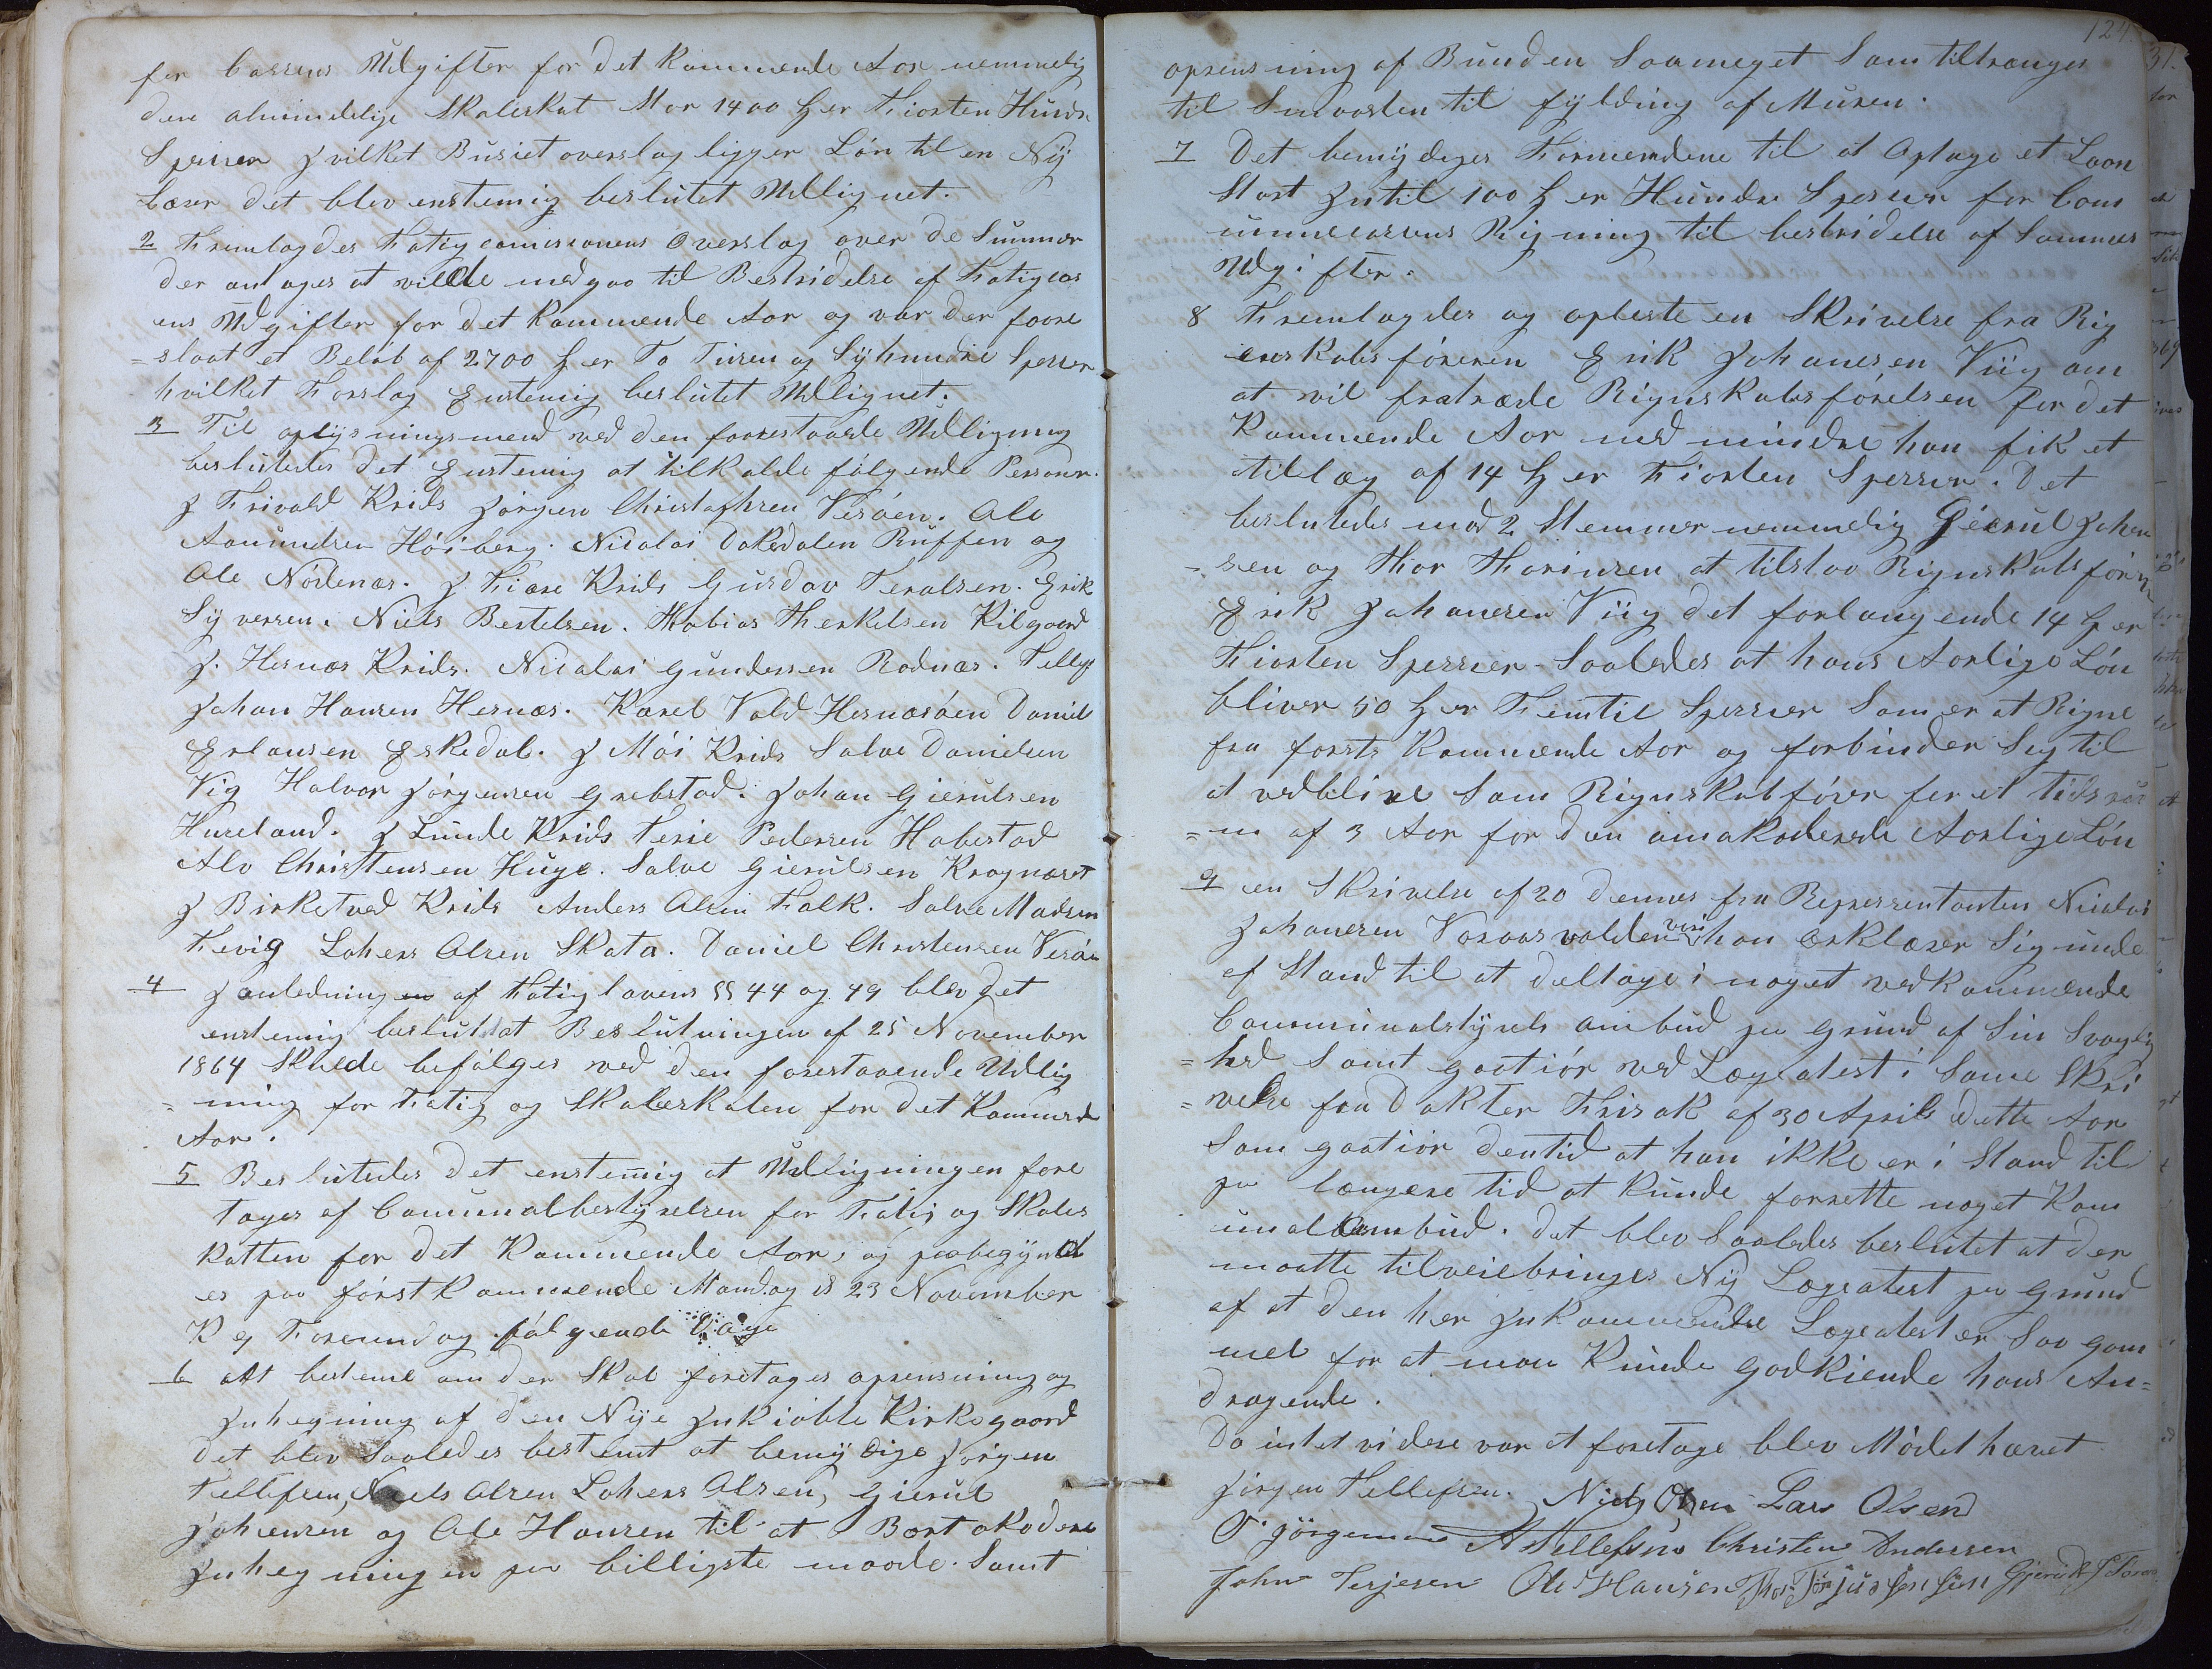 for Cassens Udgifter for det Kommende Aar nemmelig
den almindelige Skoleskat stor 1400 ₰ er Fiorten Hundr
Spesier J vilket Busiet overslag ligger Lön til en Nÿ
Lærer det blev enstemig beslutet Udlignet.
2 Fremlagdes Fatigcomisionens Overslag over de Summer
der antages at ville medgaa til Bestridelse af Fatigcas
ens Udgifter for det Kommende Aar og var der foore
=slaat et Beløb af 2700 ₰ er To Tusen og Sÿhundre Speser
hvilket Forslag Enstemig beslutet Udlignet.
3 Til oplÿsningsmend ved den forrestaaede Udligning
beslutedes det Enstemig at tilkalde fölgende Personer.
J Frivold Krids Jörgen Christofhsen Vesöen. Ole
Aanundsen Höiberg. Nicolai Dokedalen Ruffen og
Ole Nördenæs. J Fiære Krids Gusdav Teralsen. Erik
Sÿversen. Niels Bertelsen. Thobias Therkelsen Kilgaard
J. Hesnæs Krids. Nicolai Gundersen Rodnæs. Tellef
Johan Hansen Hesnæs. Karel Vold Hesnæsöen Daniel
Erlansen Eskedal. J Möi Krids Salve Danielsen
Vig Halvor Jörgensen Grebstad. Johan Gierulsen
Hureland. J Lunde Krids Terie Pedersen Habestad
Alv Christensen Huge. Salve Gierulsen Kragnæset
J Birketved Krids Anders Olsen Falk. Salve Madsen
Fevig Lohens Olsen Skata. Daniel Christensen Vesöen
4 J anledning en af Fatiglovens §§ 44 og 49 blev det
enstemig beslutet at Beslutningen af 25 November
1864 Skulde befölges ved den forestaaende Udlig
=ning for Fatig og Skoleskaten for det Kommende
Aar.
5 Beslutedes det enstemig at Udligningen fore
tages af Comunalbestÿrelsen for Fatig og Skoles
katten for det Kommende Aar, og paabegÿndt
es paa förstkommende Mandag d 23 November
K 9 Formendag fölgende Dage
6 At besteme om der Skal foretages opreinsning og
Jnhegning af den Nÿe Jnkiöbte Kirkegaard
det blev Saaledes bestemt at bemÿdige Jörgen
Tellefsen, Niels Olsen Lohens Olsen, Gierul
Johensen og Ole Hansen til at Bortakodere
Jnhegningen paa billigste maade. Samt
124
oprensning af Bunden Saameget Som tiltrænges
til Smaasten til fÿlding af Muren.
7 Det bemÿdeges Formendene til at Optage et Laan
Stort Jntil 100 ₰ er Hundre Speser for Com
unnecassens Rigning til bestridelse af Sammes
Udgifter.
8 Fremlagdes og opleste en Skrivelse fra Rig
enskabsföreren Erik Johanesen Viig om
at vil fratræde Rignskabsförelsen for det
Kommende Aar med mindre han fik et
tillæg af 14 ₰ er Fiorten Spesser. Det
beslutedes mod 2 Stemmer nemmelig Gierul Johen
=sen og Thor Thorinsen, at tilstaa Rignskabsförer
Erik Johanesen Viig det forlangende 14 ₰ er
Fiorten Spesier Saaledes at hans Aarlige Lön
bliver 50 ₰ er Femtie Spesier Som er at Rigne
fra forste Kommende Aar og forbinder Sig til
at vedblive Som Rignskabförer for et tidsru
=m af 3 Aar for den omakoderede Aarlige Lön
9 en Skrivelse af 20 dennes fra Representanten Nicolai
Johanesen Voraasvolden vori han erklærer Sig unde
af Stand til at deltage i noget vedkommende
Communalstÿrels ombud paa Grund af Sin Svagelig
=hed Samt gaatiör ved Lægeatest i Same Skri
=velse fra Dokter Thisak af 30 April dette Aar
Som gaatiör dentid at han ikke er i Stand til
paa længere tid at kunde forrette noget Kom
unalombud. Det blev Saaledes beslutet at der
maatte tilveiebringes Nÿ Lægeatest paa Grund
af at den her Jnkommende Lægeatest er Saa gam
mel for at man Kunde Godkiende hans An=
dragende.
Da intet videre var at foretage blev Mödet hævet
Jörgen Tellefsen. Niels Olsen Lars Olsend
O Jörgensen A Tellefsen Christen Andersen
John Terjesen Ole Hansen Thor Törjusensen Gjeruld J